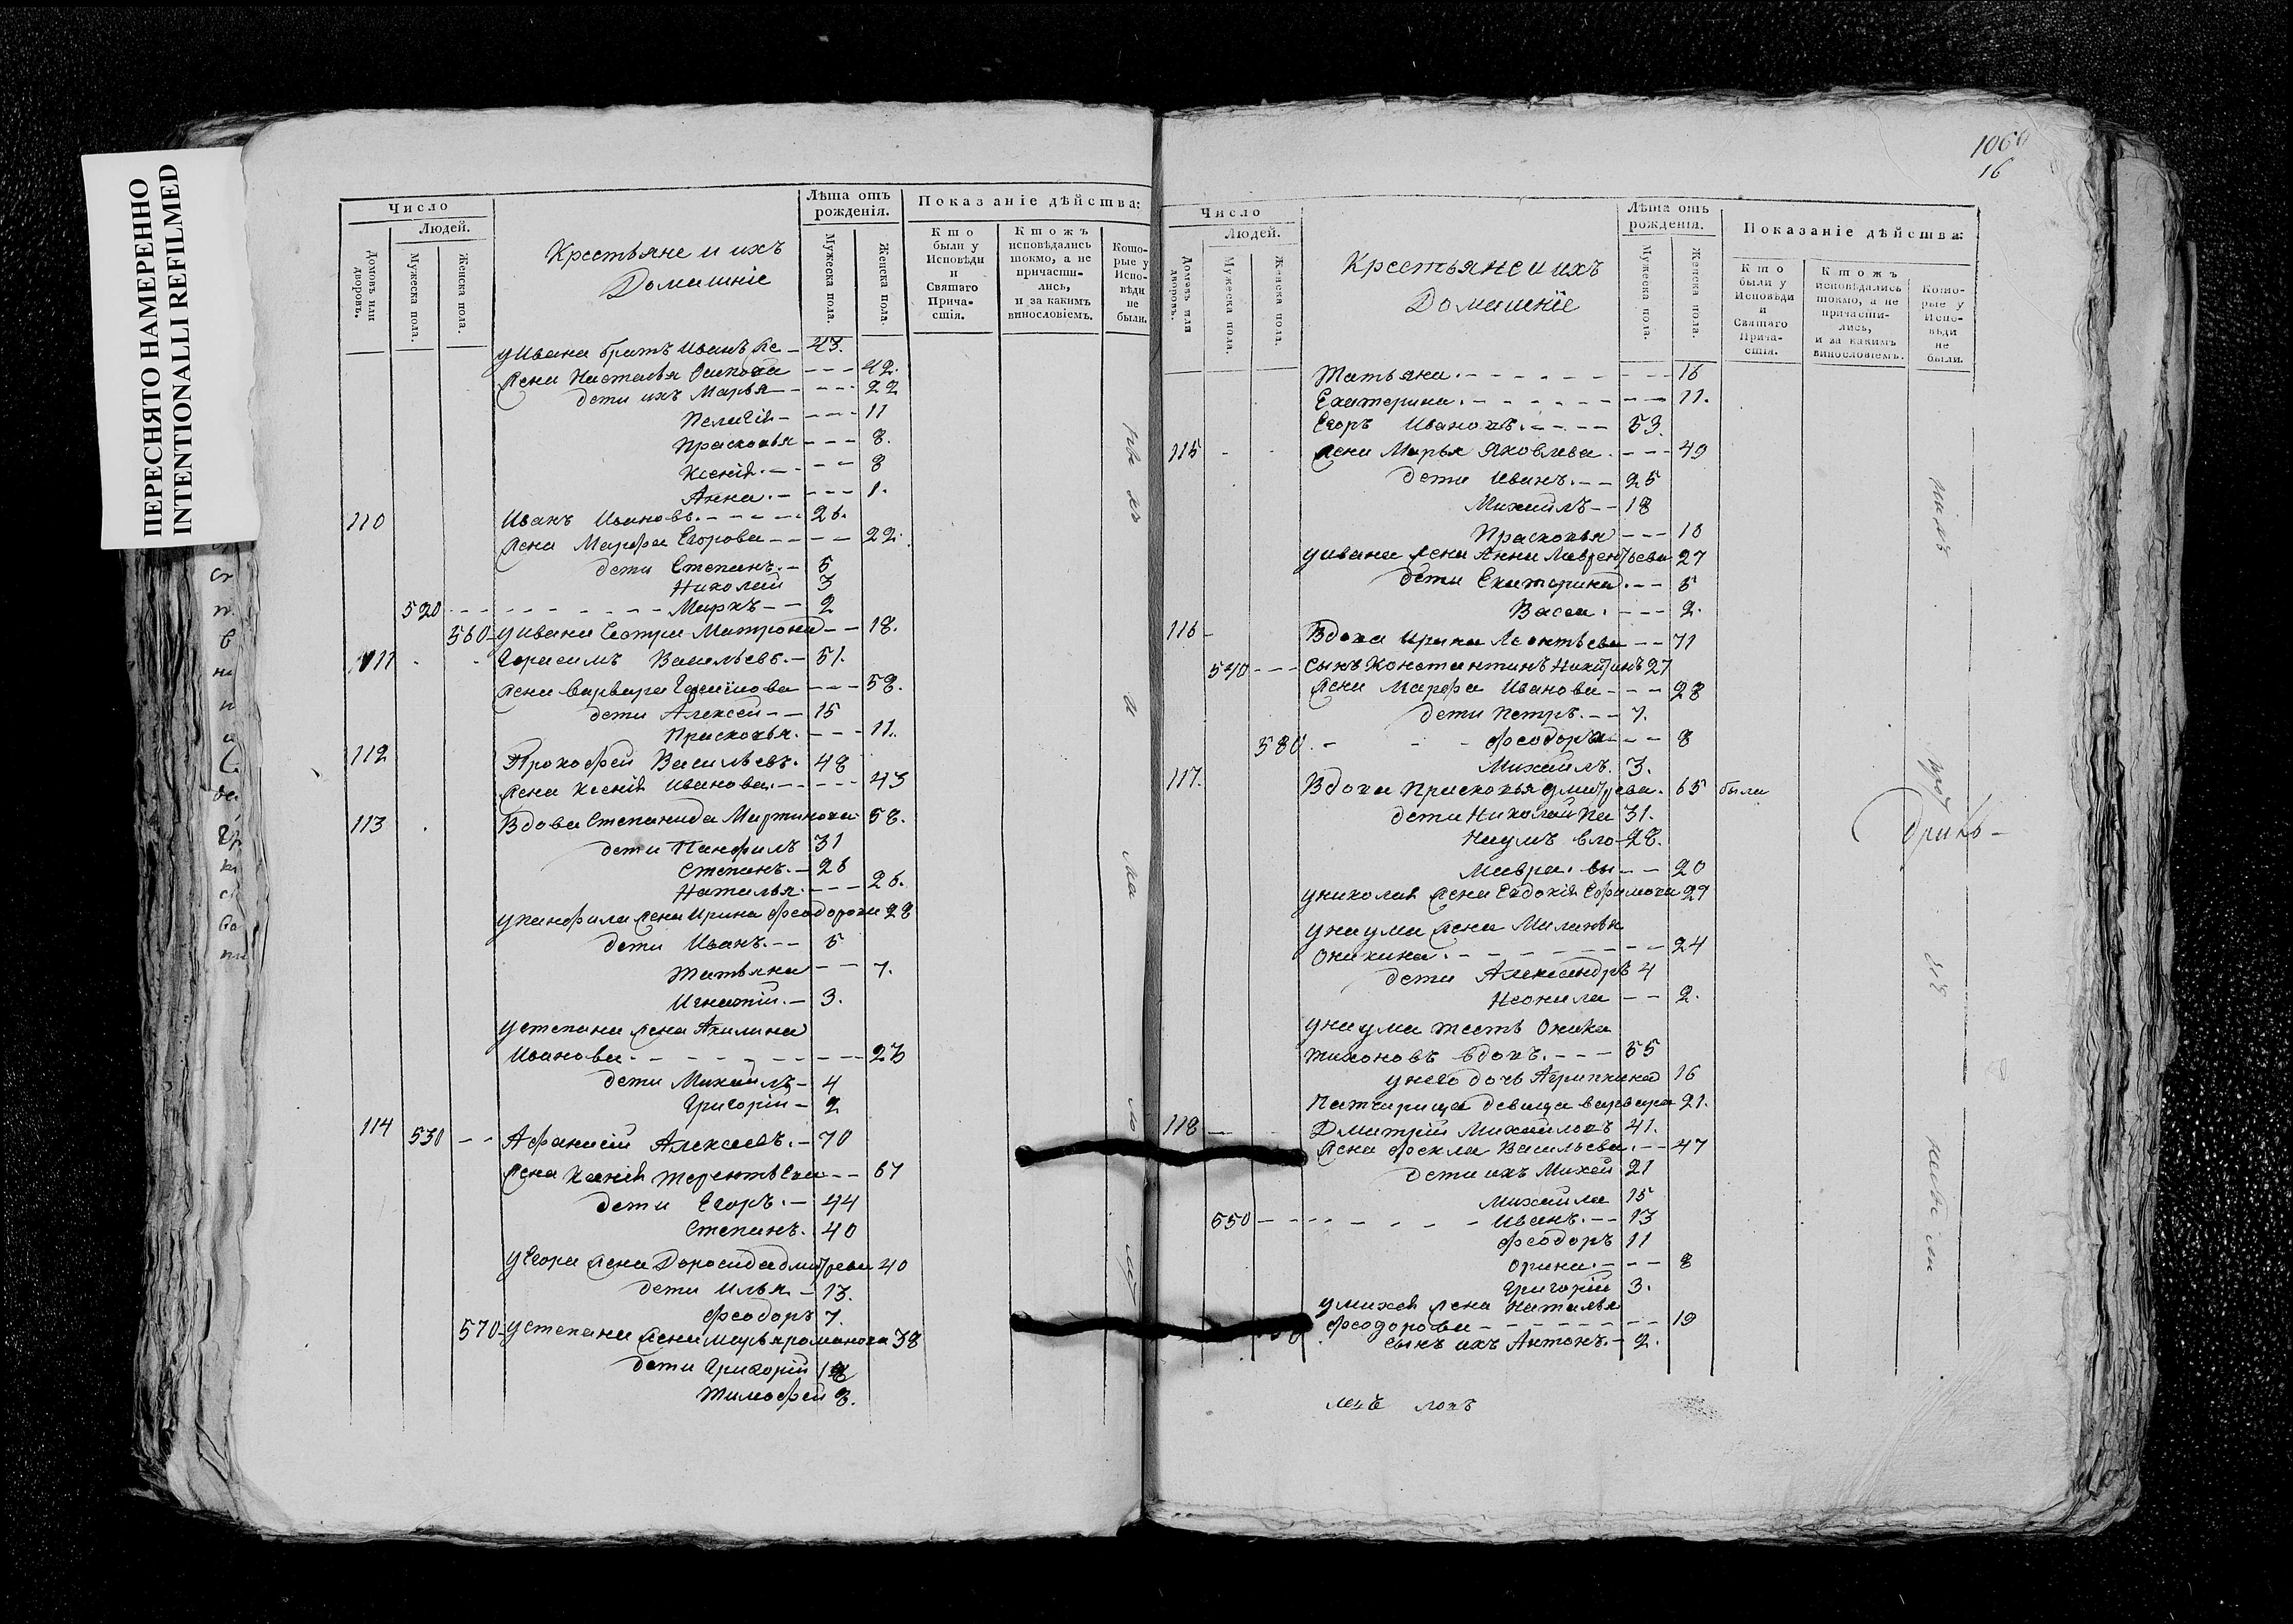 ПЕРЕСНЯТО НАМЕРЕННО
INTENTIONALLI REFILMED
Число
Людей.
Домовъ или дворовъ.
Мужеска пола.
Женска пола.
Крестьяне и ихъ
Домашніе
Лѣта отъ рожденія.
Мужеска пола.
Женска пола.
Показаніе дѣйства:
Кто были у Исповѣди и Святаго Причастія.
Ктожъ исповѣдались токмо, а не причастились, и за какимъ винословіемъ.
Которые у Исповѣди не были.
у Ивана братъ Иванъ 43.
жена Настасья Осипова 42.
дети ихъ Марья 22
Пелагія 11
Прасковья 8.
Ксенія 8
Анна 1.
110 Иванъ Ивановъ 26.
жена Марфа Егорова 22.
дети Степанъ 5
Николай 3
520 Маркъ 2
560 у Ивана сестра Матрона 18.
111 Герасимъ Васильевъ 51.
жена Варвара 58.
дети Алексей 15
Прасковья 11.
112 Прокофей Васильевъ 48
жена Ксенія Иванова 43
113 Вдова Степанида Мартинова 58.
дети Панфилъ 31
Степанъ 26
Наталья 26.
у Панфила жена Ирина Феодорова 28
дети Иванъ 5
Татьяна 7.
Игнатій 3.
у Степана жена Акилина
Иванова 23
дети Михаилъ 4
Григорій 2
114 530 Афанасій Алексеевъ 70
жена Ксенія Терентьева 67
дети Егоръ 44
Степанъ 40
у Егора жена Доросида Дмитрева 40
дети Илья 13.
Феодоръ 7.
570 у Степана жена Марья Романова 38
дети Григорій
Тимофей 8.
1060
16
Число
Людей.
Домовъ или дворовъ.
Мужеска пола.
Женска пола.
Крестьяне и ихъ
Домашніе
Лѣта отъ рожденія.
Мужеска пола.
Женска пола.
Показаніе дѣйства:
Кто были у Исповѣди и Святаго Причастія.
Ктожъ исповѣдались токмо, а не причастились, и за какимъ винословіемъ.
Которые у Исповѣди не были.
Татьяна 16
Екатерина 11.
Егоръ Ивановъ 53.
115 жена Марья Яковлева 49
дети Иванъ 25
Михаилъ 18
Прасковья 18
у Ивана жена Анна Лаврентьева 27
дети Екатерина 5
Васса 2.
116 Вдова Ирина Леонтьева 71
540 сынъ Константинъ Никитинъ 27
жена Марфа Иванова 28
дети Петръ 7.
580 Феодора 8
Михаилъ 3.
117. Вдова Прасковья Дмитрева 65 были
дети Николай 31.
Наумъ 28.
Мавра 20
у Николая жена Евдокія Ефимова 29
у Наума жена Маланья
Оникина 24
дети Александръ 4
Неонила 2.
у Наума тесть Оника
Тихоновъ вдовъ 55
у него дочь Агрипинна 16
Патчирица девица Варвара 21.
118 Дмитрій Михайловъ 41.
жена Фекла Васильева 47
дети ихъ Михей 21
Михайла 15
550 Иванъ 13
Феодоръ 11
Орина 8
Григорій 3.
у Михея жена Наталья
Феодорова 19
сынъ ихъ Антонъ 2.